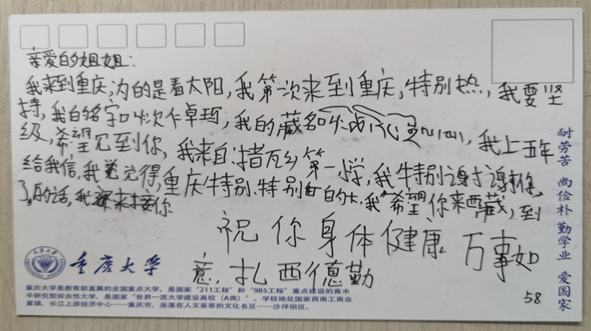 亲爱的姐姐：
我来到重庆，为的是看太阳，我第一次来到重庆，特别热，我要坚
持，我的名字叫次仁卓玛，我的藏名叫，我上五年
级，希望见到你，我来自：措瓦乡第一小学，我特别谢谢你
给我信，我觉得，重庆特别、特别的大，我希望你来西藏，到
了的话，我来接你
祝你身体健康 万事如
意，扎西德勒
58
耐劳苦 尚俭朴 勤学业 爱国家
重庆大学
重庆大学是教育部直属的全国重点大学，是国家“211工程”和“985工程”重点建设的高水
平研究型综合性大学，是国家“世界一流大学建设高校（A类）”。学校地处国家西南工商业
重镇、长江上游经济中心——重庆市，坐落在人文荟萃的文化名区——沙坪坝区。